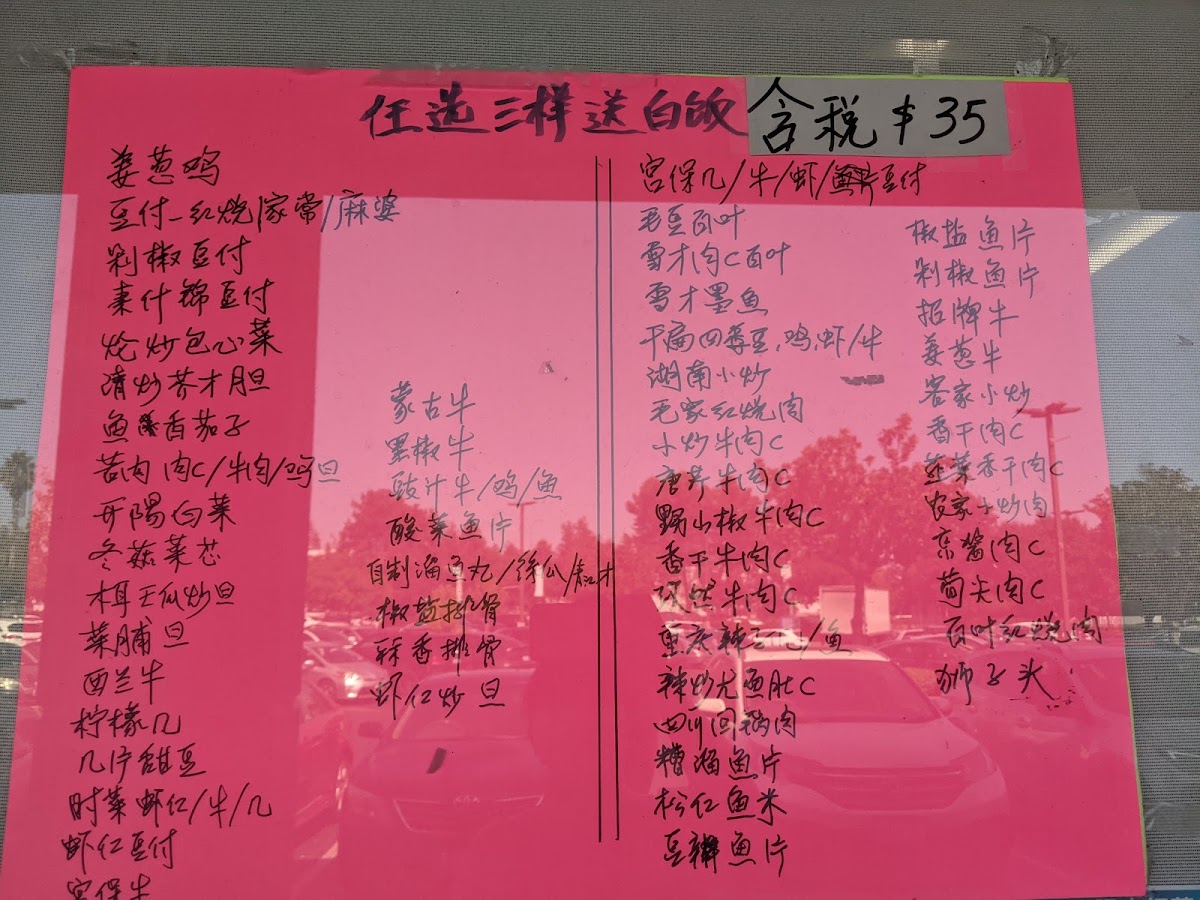 任选三样送白饭 含税 $35
姜葱鸡
豆付-红烧/家常/麻婆
剁椒豆付
素什锦豆付
炝炒包心菜
清炒芥才胆
鱼香茄子
苦肉 肉C/牛肉/鸡旦
开陽白菜
冬菇菜芯
木耳王瓜炒旦
菜脯旦
西兰牛
柠檬几
几片甜豆
时菜虾仁/牛/几
虾仁豆付
宫保牛
蒙古牛
黑椒牛
豉汁牛/鸡/鱼
酸菜鱼片
自制溜鱼丸/丝瓜/青江才
椒盐排骨
蒜香排骨
虾仁炒旦
宫保几/牛/虾/豆付
毛豆百叶
雪才肉C百叶
雪才墨鱼
干扁四季豆,鸡,虾/牛
湖南小炒
毛家红烧肉
小炒牛肉C
唐芹牛肉C
野山椒牛肉C
香干牛肉C
孜然牛肉C
重庆辣子/鱼
辣炒尤鱼肚C
四川回锅肉
糟溜鱼片
松仁鱼米
豆瓣鱼片
椒盐鱼片
剁椒鱼片
招牌牛
姜葱牛
客家小炒
香干肉C
韭菜香干肉C
农家小炒肉
京酱肉C
笋尖肉C
百叶红烧肉
狮子头